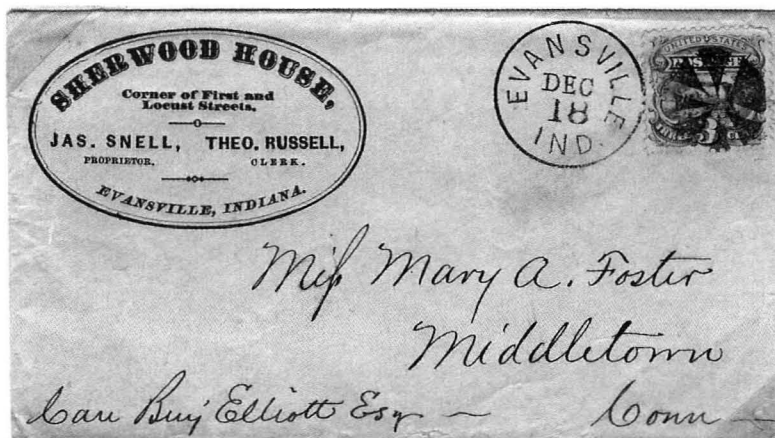 SHERWOOD HOUSE,
Corner of First and
Locust Streets.
JAS. SNELL, THEO. RUSSELL,
PROPRIETOR. CLERK.
EVANSVILLE, INDIANA.
EVANSVILLE
DEC
18
IND.
UNITED STATES
POSTAGE
3
Miſs Mary A. Foster
Middletown
Care Benj Elliott Esq — Conn —